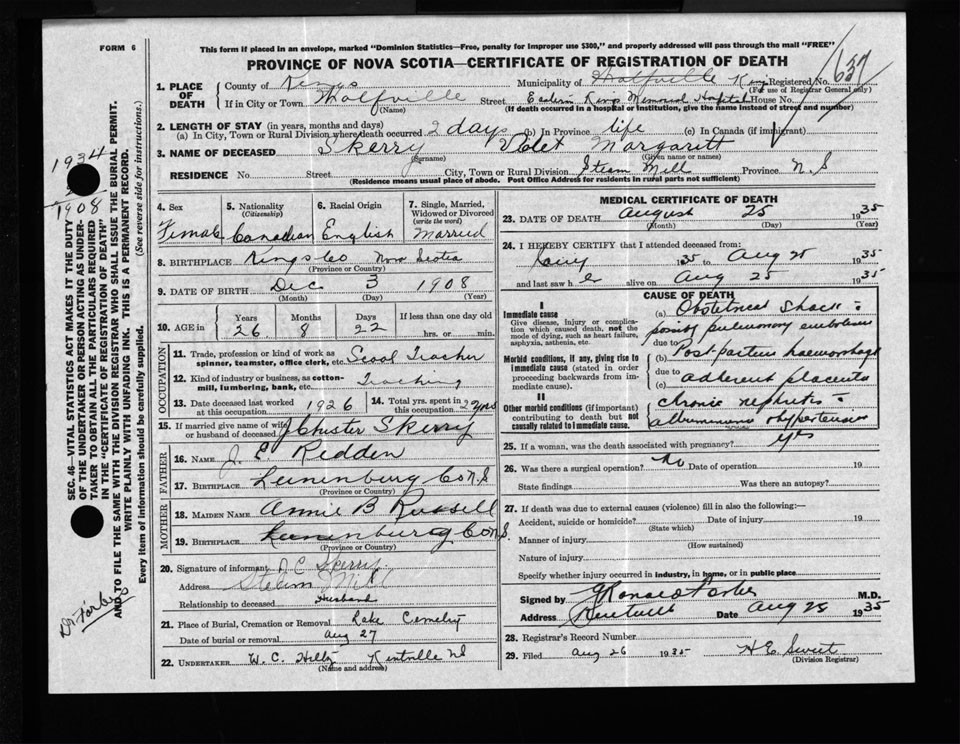 FORM 6
This form if placed in an envelope, marked "Dominion Statistics—Free, penalty for improper use $300," and properly addressed will pass through the mail "FREE"
PROVINCE OF NOVA SCOTIA—CERTIFICATE OF REGISTRATION OF DEATH
637
1. PLACE OF DEATH
County of Kings Municipality of Wolfville Kings Registered No.
(For use of Registrar General only)
If in City or Town Wolfville Street Eastern Kings Memorial Hospital House No.
(If death occurred in a hospital or institution, give the name instead of street and number)
2. LENGTH OF STAY (in years, months and days)
(a) In City, Town or Rural Division where death occurred 2 days (b) In Province life (c) In Canada (if immigrant)
3. NAME OF DECEASED Skerry Violet Margaritt
(Surname) (Given name or names)
RESIDENCE No. Street City, Town or Rural Division Steam Mill Province N.S
(Residence means usual place of abode. Post Office Address for residents in rural parts not sufficient)
4. Sex 5. Nationality (Citizenship) 6. Racial Origin 7. Single, Married, Widowed or Divorced (write the word)
Female Canadian English Married
8. BIRTHPLACE Kings Co Nova Scotia
(Province or Country)
9. DATE OF BIRTH Dec 3 1908
(Month) (Day) (Year)
10. AGE in Years Months Days If less than one day old
26 8 22 hrs. or min.
OCCUPATION
11. Trade, profession or kind of work as spinner, teamster, office clerk, etc. Scool Teacher
12. Kind of industry or business, as cotton-mill, lumbering, bank, etc. Teaching
13. Date deceased last worked at this occupation 1926 14. Total yrs. spent in this occupation 2 yrs
15. If married give name of wife or husband of deceased J Chester Skerry
FATHER
16. NAME J. E Redden
17. BIRTHPLACE Lunenburg Co N.S
(Province or Country)
MOTHER
18. MAIDEN NAME Annie B Russell
19. BIRTHPLACE Lunenburg Co N.S
(Province or Country)
20. Signature of informant J. C Skerry
Address Steam Mill
Relationship to deceased Husband
21. Place of Burial, Cremation or Removal Cemetry
Date of burial or removal Aug 27
22. UNDERTAKER W. C. Kentville NS
(Name and address)
MEDICAL CERTIFICATE OF DEATH
23. DATE OF DEATH August 25 1935
(Month) (Day) (Year)
24. I HEREBY CERTIFY that I attended deceased from:
1935 to Aug 25 1935
and last saw h er alive on Aug 25 1935
CAUSE OF DEATH
I
Immediate cause
Give disease, injury or complication which caused death, not the mode of dying, such as heart failure, asphyxia, asthenia, etc.
Morbid conditions, if any, giving rise to immediate cause (stated in order proceeding backwards from immediate cause).
II
Other morbid conditions (if important) contributing to death but not causally related to immediate cause.
(a) Obstetrical shock -
possibly pulmonary embolism
due to
(b) Post-partum haemorrhage
due to
(c) adherent placenta
chronic nephritis -
albuminuria hypertension
25. If a woman, was the death associated with pregnancy? yes
26. Was there a surgical operation? no Date of operation 19
State findings Was there an autopsy?
27. If death was due to external causes (violence) fill in also the following:—
Accident, suicide or homicide? Date of injury 19
(State which)
Manner of injury
(How sustained)
Nature of injury
Specify whether injury occurred in industry, in home, or in public place
Signed by M.D.
Address Kentville Date Aug 25 1935
28. Registrar's Record Number
29. Filed Aug 26 1935 H E Sweet
(Division Registrar)
SEC. 46—VITAL STATISTICS ACT MAKES IT THE DUTY OF THE UNDERTAKER OR PERSON ACTING AS UNDERTAKER TO OBTAIN ALL THE PARTICULARS REQUIRED IN THE "CERTIFICATE OF REGISTRATION OF DEATH" AND TO FILE THE SAME WITH THE DIVISION REGISTRAR WHO SHALL ISSUE THE BURIAL PERMIT.
WRITE PLAINLY WITH UNFADING INK. THIS IS A PERMANENT RECORD.
Every item of information should be carefully supplied. (See reverse side for instructions.)
1934
1908
Dr Forbes